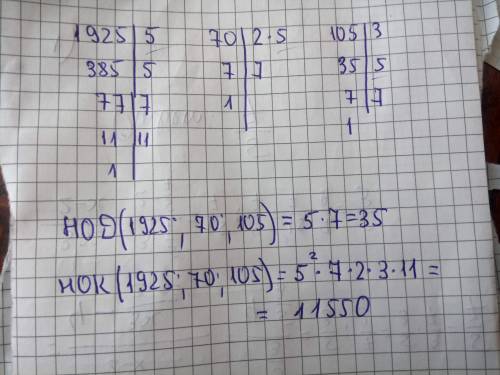 1925 | 5
385 | 5
77 | 7
11 | 11
1 |
70 | 2·5
7 | 7
1 |
105 | 3
35 | 5
7 | 7
1
НОД(1925; 70; 105) = 5·7=35
НОК(1925; 70; 105) = 5²·7·2·3·11 =
= 11550